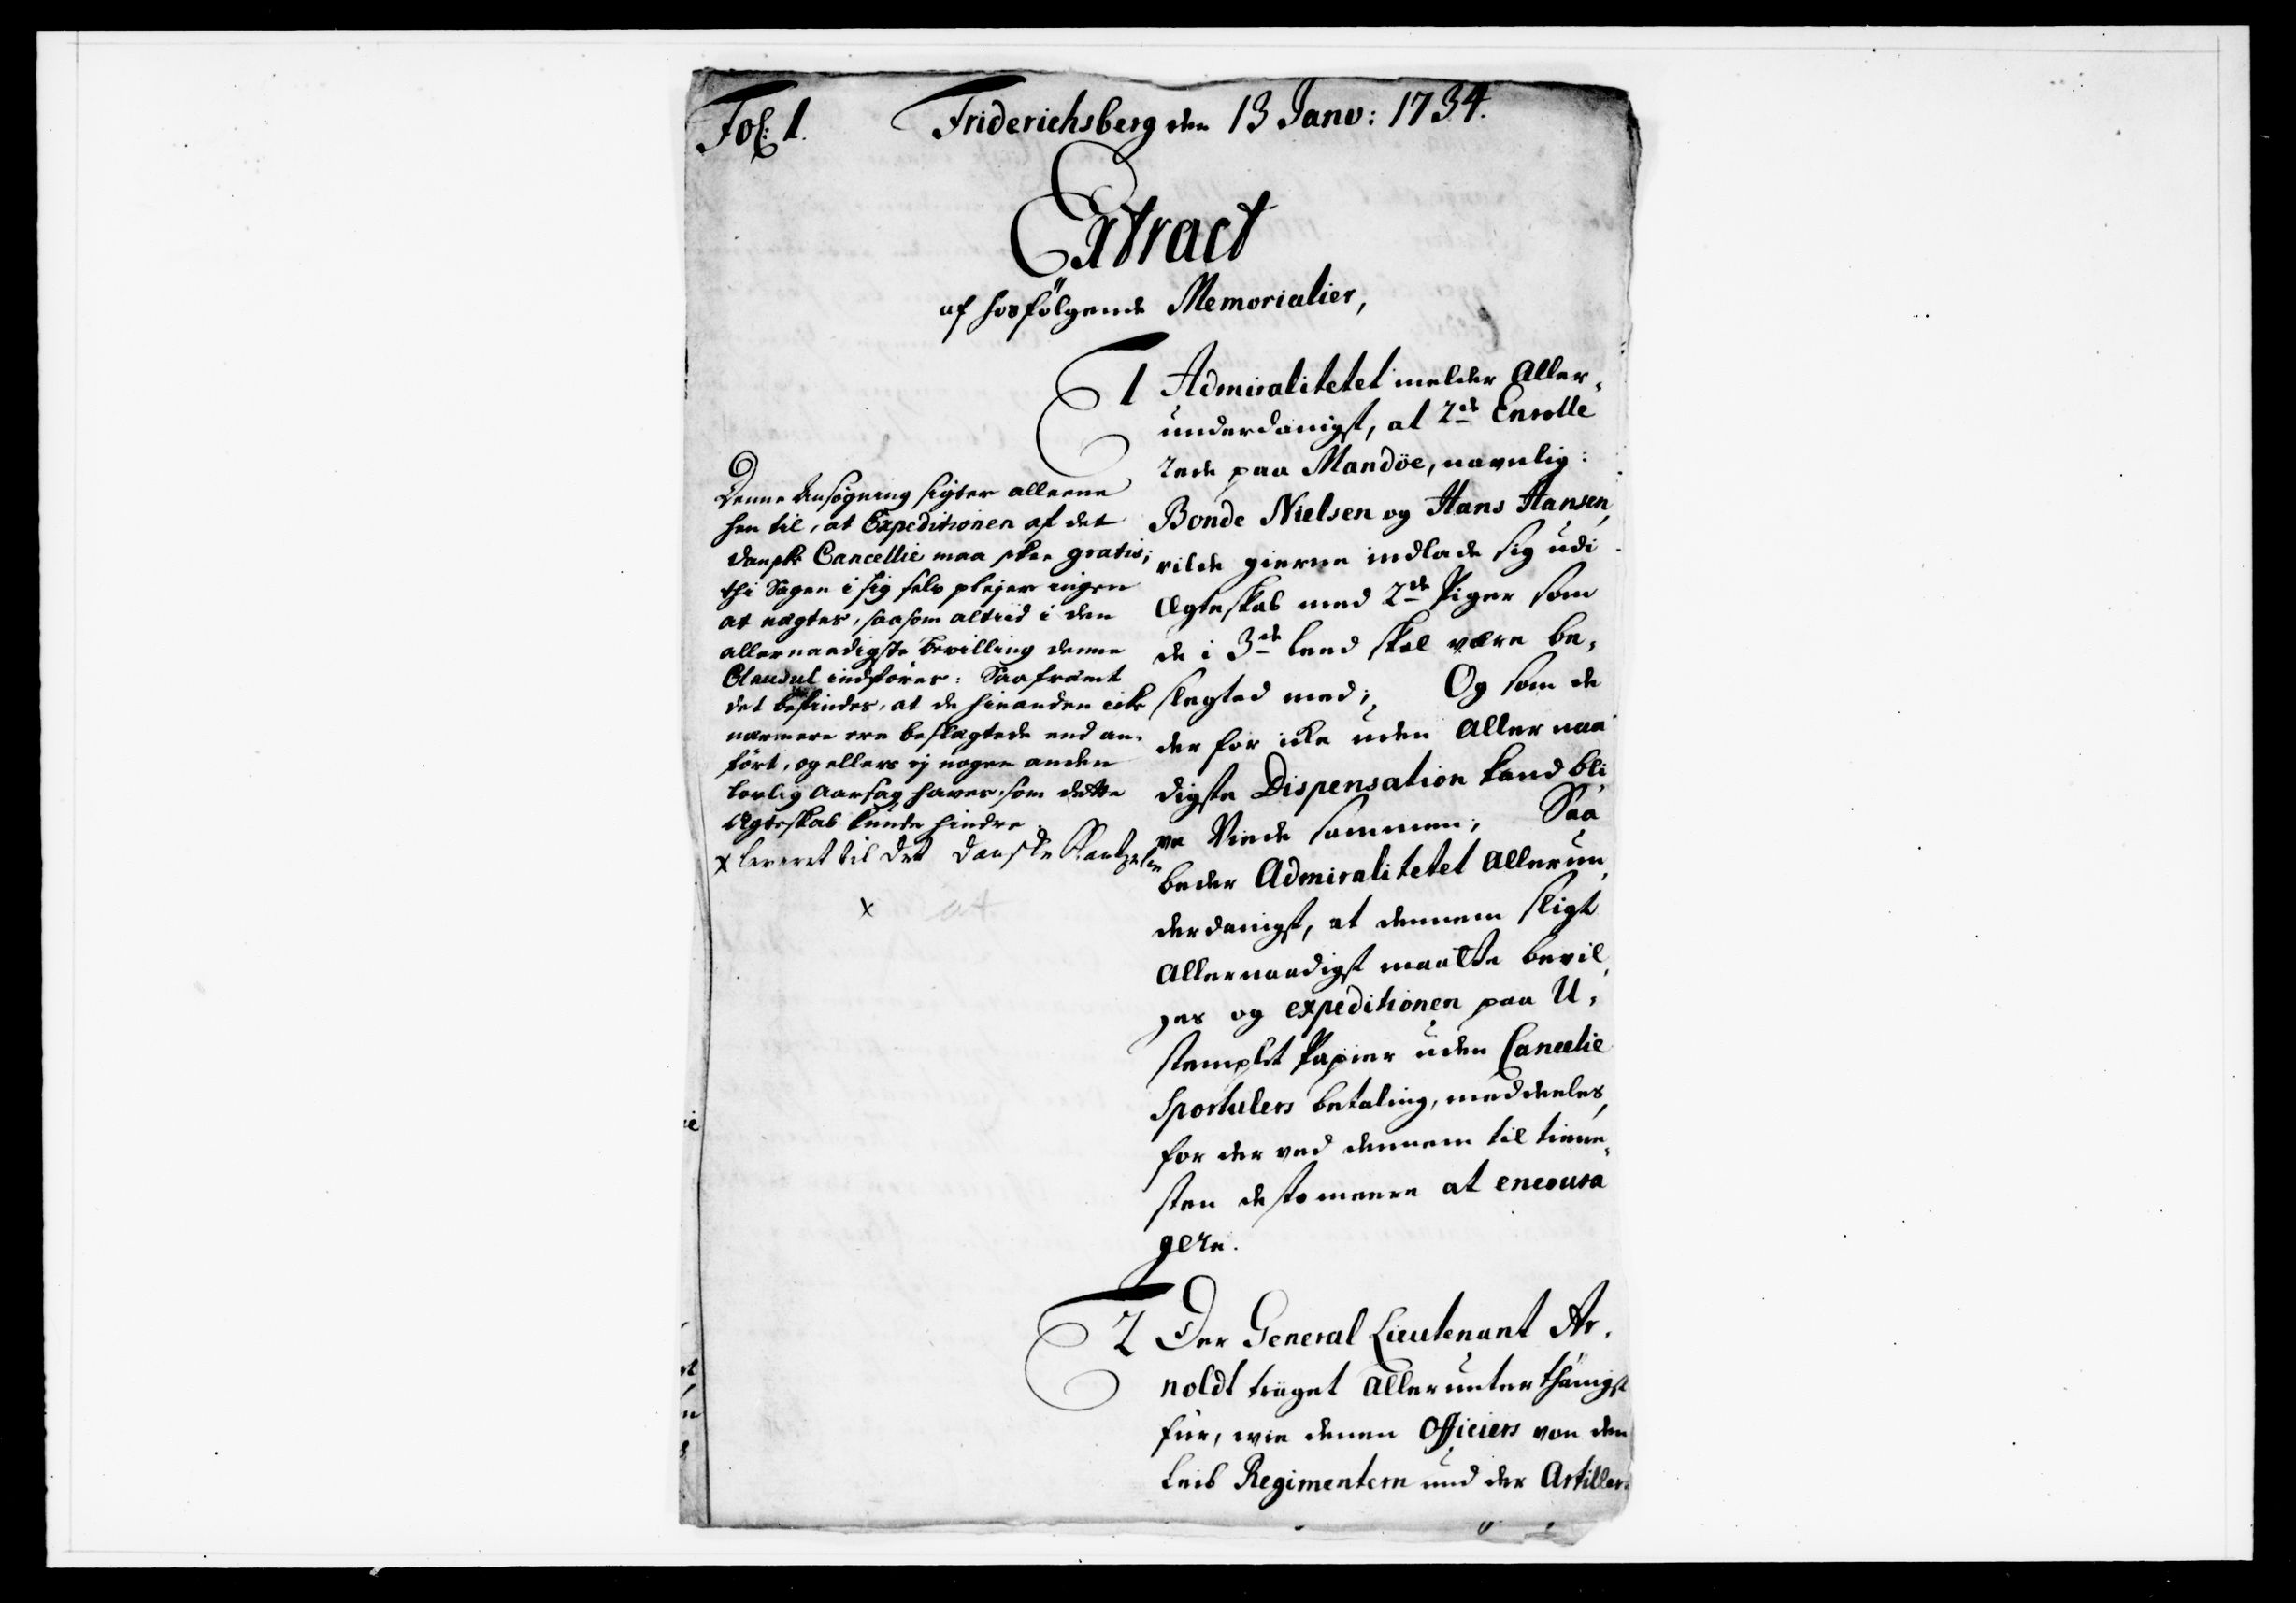 Fol: 1.
Friderichsberg den 13 Janv: 1734.
Extract
af hosfölgende Memorialier,
1 Admiralitetet melder Aller,
underdanigst, at 2de Enrolle
rede paa Mandöe, navnlig:
Bonde Nielsen og Hans Hansen,
vilde gierne indlade sig udi
Ægteskab med 2de Piger som
de i 3de leed skal være be,
slegted med; Og som de
der for icke uden Aller naa
digste Dispensation kand bli,
ve Viede sammen; Saa
beder Admiralitetet Allerun,
derdanigst, at dennem sligt
Allernaadigst maatte bevil,
ges og expeditionen paa U,
stemplet Papier uden Cancelie
Sportulers betaling, meddeeles,
for der ved dennem til tiene,
sten desto meere at encoura
gere.
Denne Ansøgning sigter alleene
hen til, at Expeditionen af det
danske Cancellie maa skee gratis;
thi Sagen i sig selv plejer ingen
at nægtes, saasom altiid i den
allernaadigste Bevilling denne
Clausul indföres: Saafremt
det befindes, at de hinanden icke
nærmere ere beslægtede end an,
fört, og ellers ej nogen anden
lovlig Aarsag haves, som dette
Ægteskab kunde hindre.
x leveret til det danske Cantzelie
x
2 Der General Lieutenant Ar,
noldt träget Allerunterthänigst
für, wie denen Officiers von den
Leib Regimentern und der Artiller